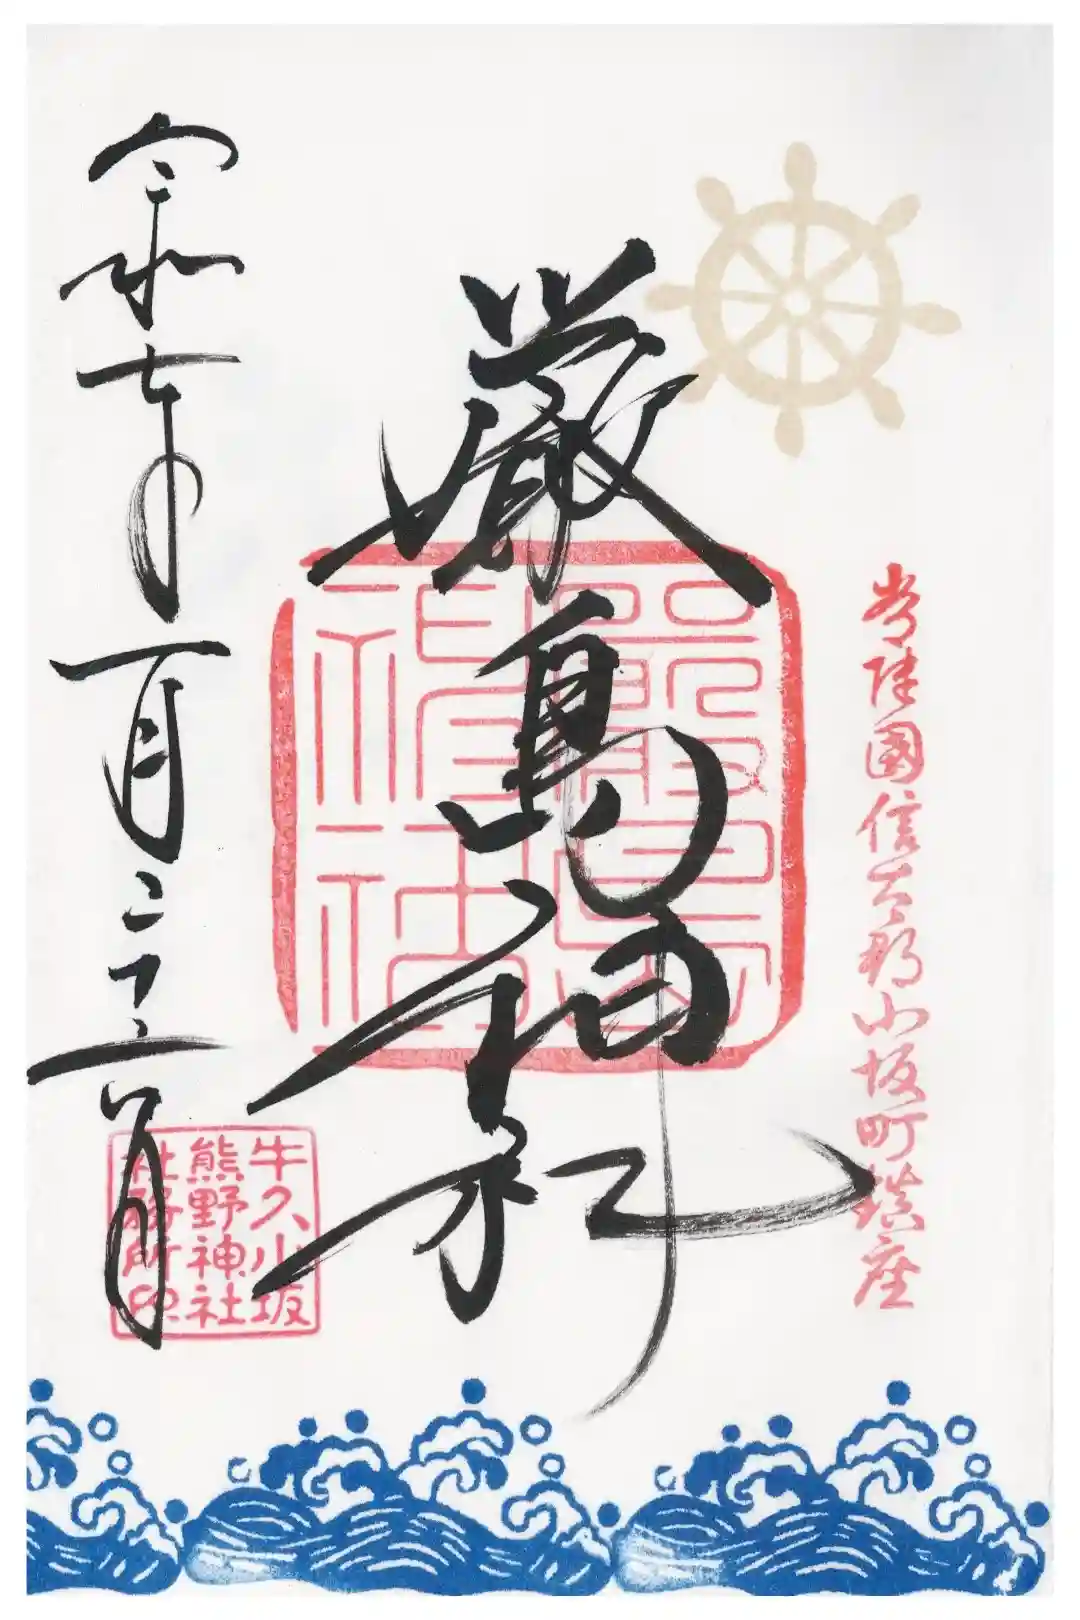 常陸國信太郡小坂町鎮座
厳島神社
嚴島神社
令和七年一月二十二日
牛久小坂
熊野神社
社務所印